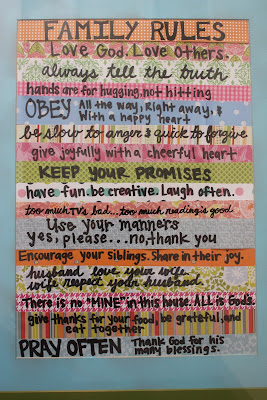 FAMILY RULES
Love God. Love Others.
always tell the truth
hands are for hugging, not hitting
OBEY All the way, Right away, &
With a happy heart
be slow to anger & quick to forgive
give joyfully with a cheerful heart
KEEP YOUR PROMISES
have fun. be creative. Laugh often.
too much TV's bad... too much reading is good.
Use your manners
yes, please...no, thank you
Encourage your siblings. Share in their joy.
husband love your wife.
wife respect your husband.
There is no "MINE" in this house. ALL is God's.
give thanks for your food, be grateful, and
eat together
PRAY OFTEN Thank God for his
many blessings.